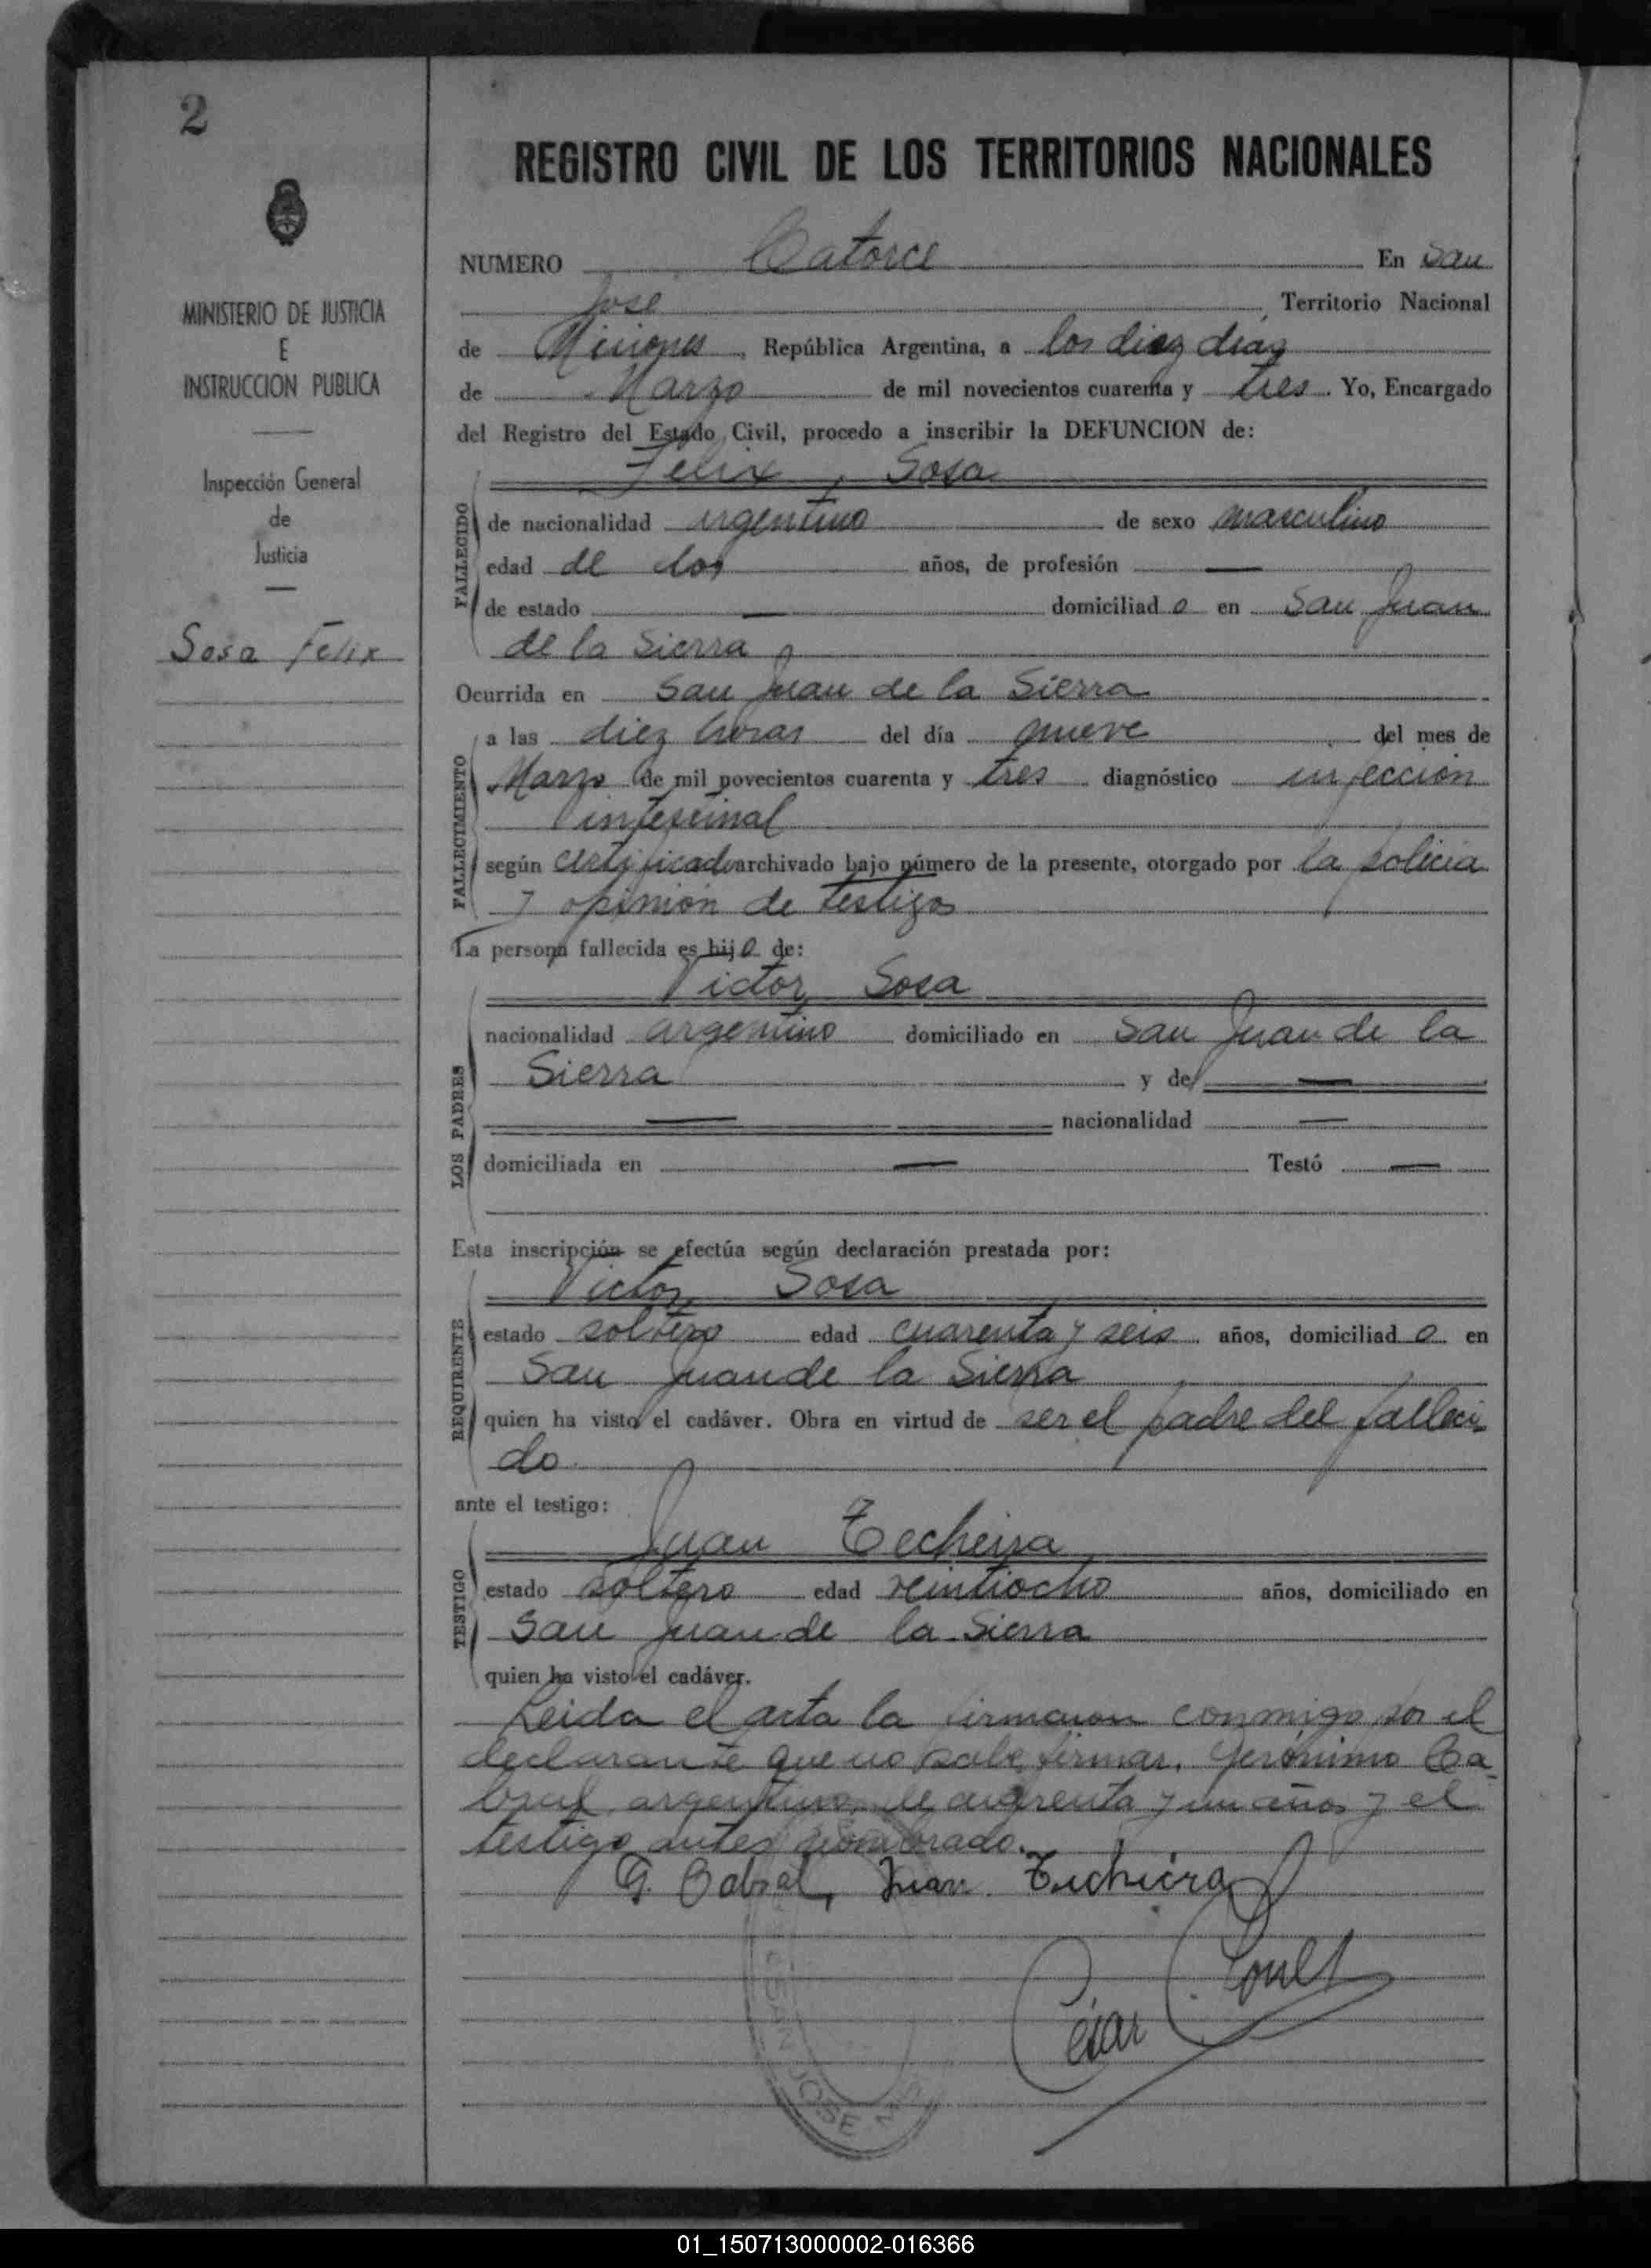 2
MINISTERIO DE JUSTICIA
E
INSTRUCCION PUBLICA
Inspección General
de
Justicia
Sosa Felix
REGISTRO CIVIL DE LOS TERRITORIOS NACIONALES
NUMERO Catorce En San
José Territorio Nacional
de Misiones, República Argentina, a los diez días
de Marzo de mil novecientos cuarenta y tres. Yo, Encargado
del Registro del Estado Civil, procedo a inscribir la DEFUNCION de:
Felix, Sosa
FALLECIDO
de nacionalidad argentino de sexo masculino
edad de dos años, de profesión —
de estado — domiciliado en San Juan
de la Sierra
Ocurrida en San Juan de la Sierra
FALLECIMIENTO
a las diez horas del día nueve del mes de
Marzo de mil novecientos cuarenta y tres diagnóstico infección
intestinal
según certificado archivado bajo número de la presente, otorgado por la policia
y opinión de testigos
La persona fallecida es hijo de:
Victor Sosa
LOS PADRES
nacionalidad argentino domiciliado en San Juan de la
Sierra y de —
— nacionalidad —
domiciliada en — Testó —
Esta inscripción se efectúa según declaración prestada por:
Victor Sosa
REQUIRENTE
estado soltero edad cuarenta y seis años, domiciliado en
San Juan de la Sierra
quien ha visto el cadáver. Obra en virtud de ser el padre del falleci-
do.
ante el testigo:
Juan Techeira
TESTIGO
estado soltero edad veintiocho años, domiciliado en
San Juan de la Sierra
quien ha visto el cadáver.
Leida el acta la firmaron conmigo, por el
declarante que no sabe firmar, Gerónimo Ca-
bral, argentino, de cuarenta y un años y el
testigo antes nombrado.
G. Cabral, Juan Techiera
César
SAN JOSE
01_150713000002-016366